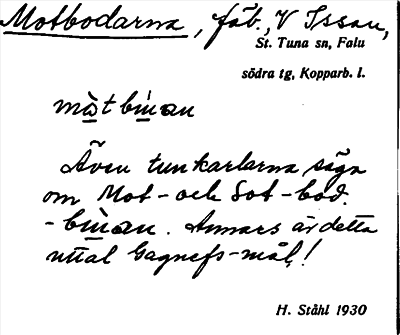 Motbodarna, fäb., V Issau,
St. Tuna sn, Falu
södra tg, Kopparb. l.
mòtbùan
Även tunkarlarna säga
om Mot- och Sot-bod.
-bùan. Annars är detta
uttal Gagnefs-mål!
H. Ståhl 1930